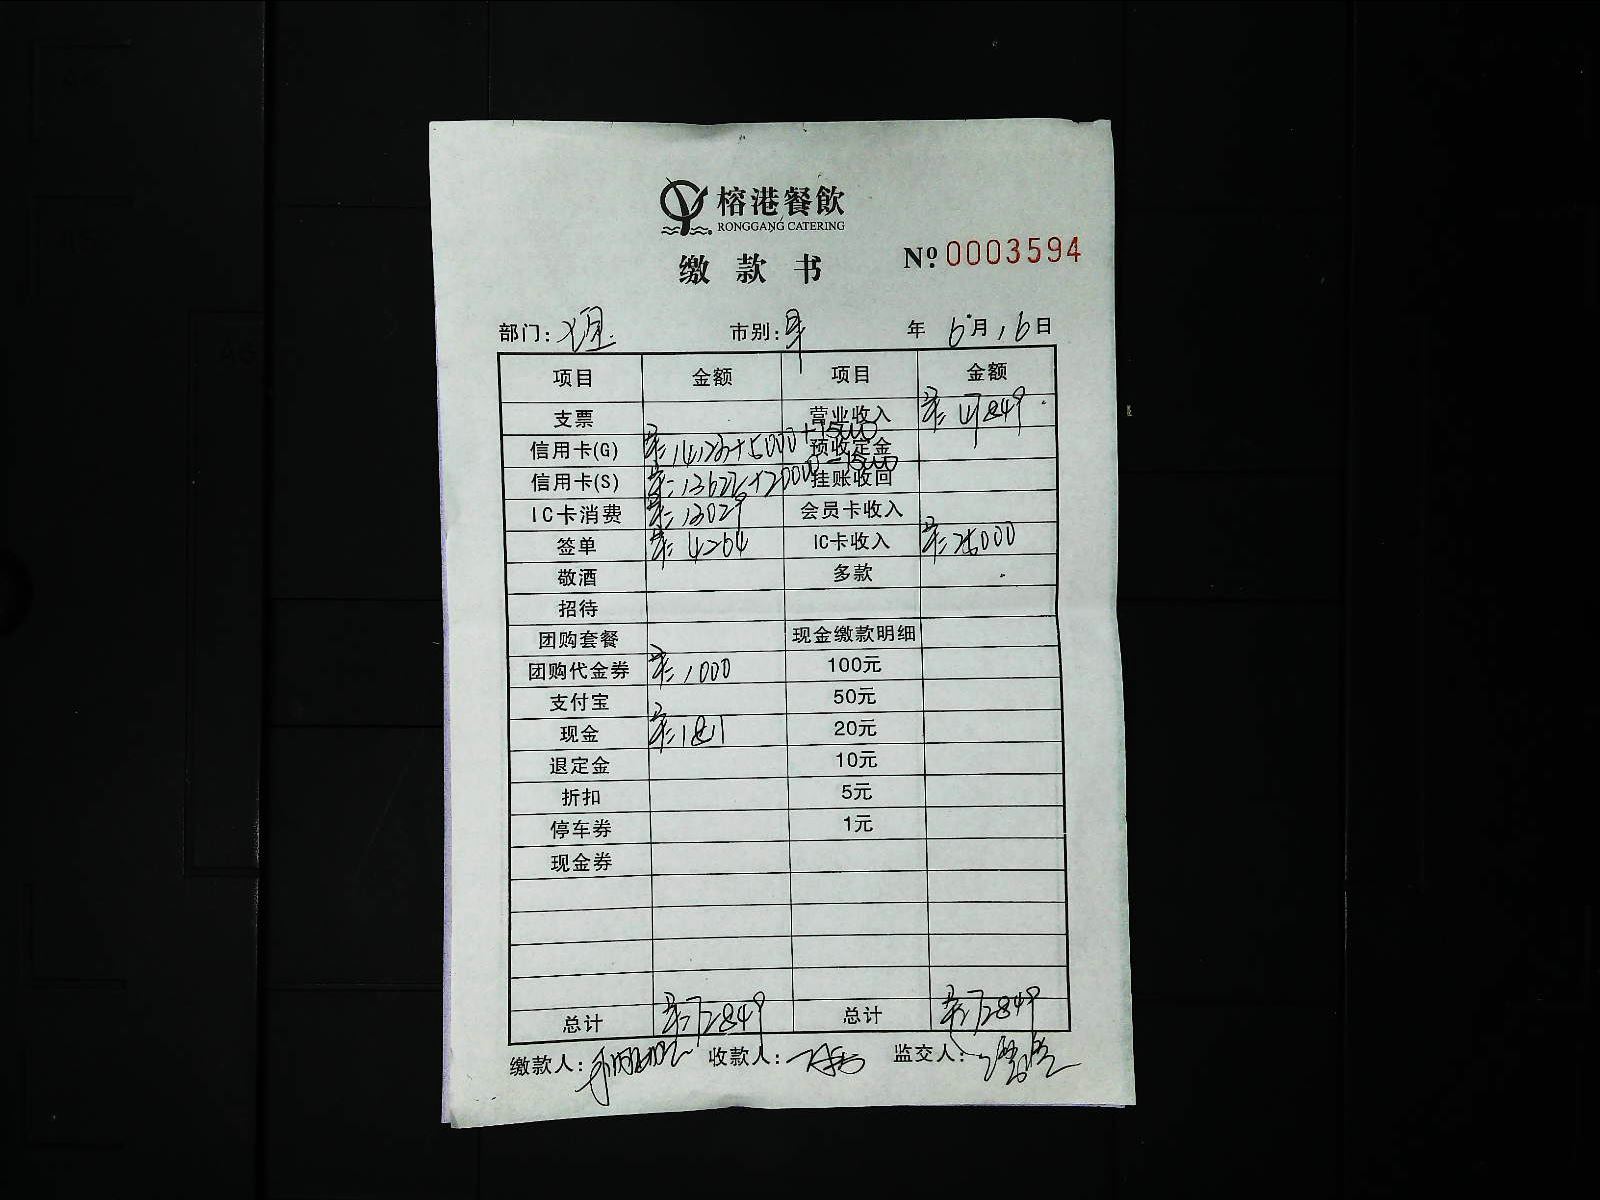 榕港餐飲
RONGGANG CATERING
缴款书 Nº 0003594
部门: 市别: 年 6月16日
项目 金额 项目 金额
支票 营业收入 47849
信用卡(G) +5000+15000 预收定金
信用卡(S) 13622+20000-15000 挂账收回
IC卡消费 13029 会员卡收入
签单 4264 IC卡收入 25000
敬酒 多款
招待
团购套餐 现金缴款明细
团购代金券 1000 100元
支付宝 50元
现金 1811 20元
退定金 10元
折扣 5元
停车券 1元
现金券
总计 72849 总计 72849
缴款人: 收款人: 监交人: